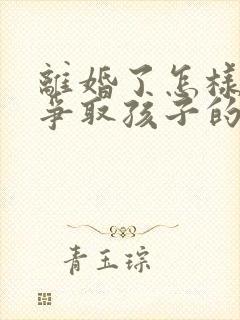 離婚了怎樣
爭取孩子的
青玉琮